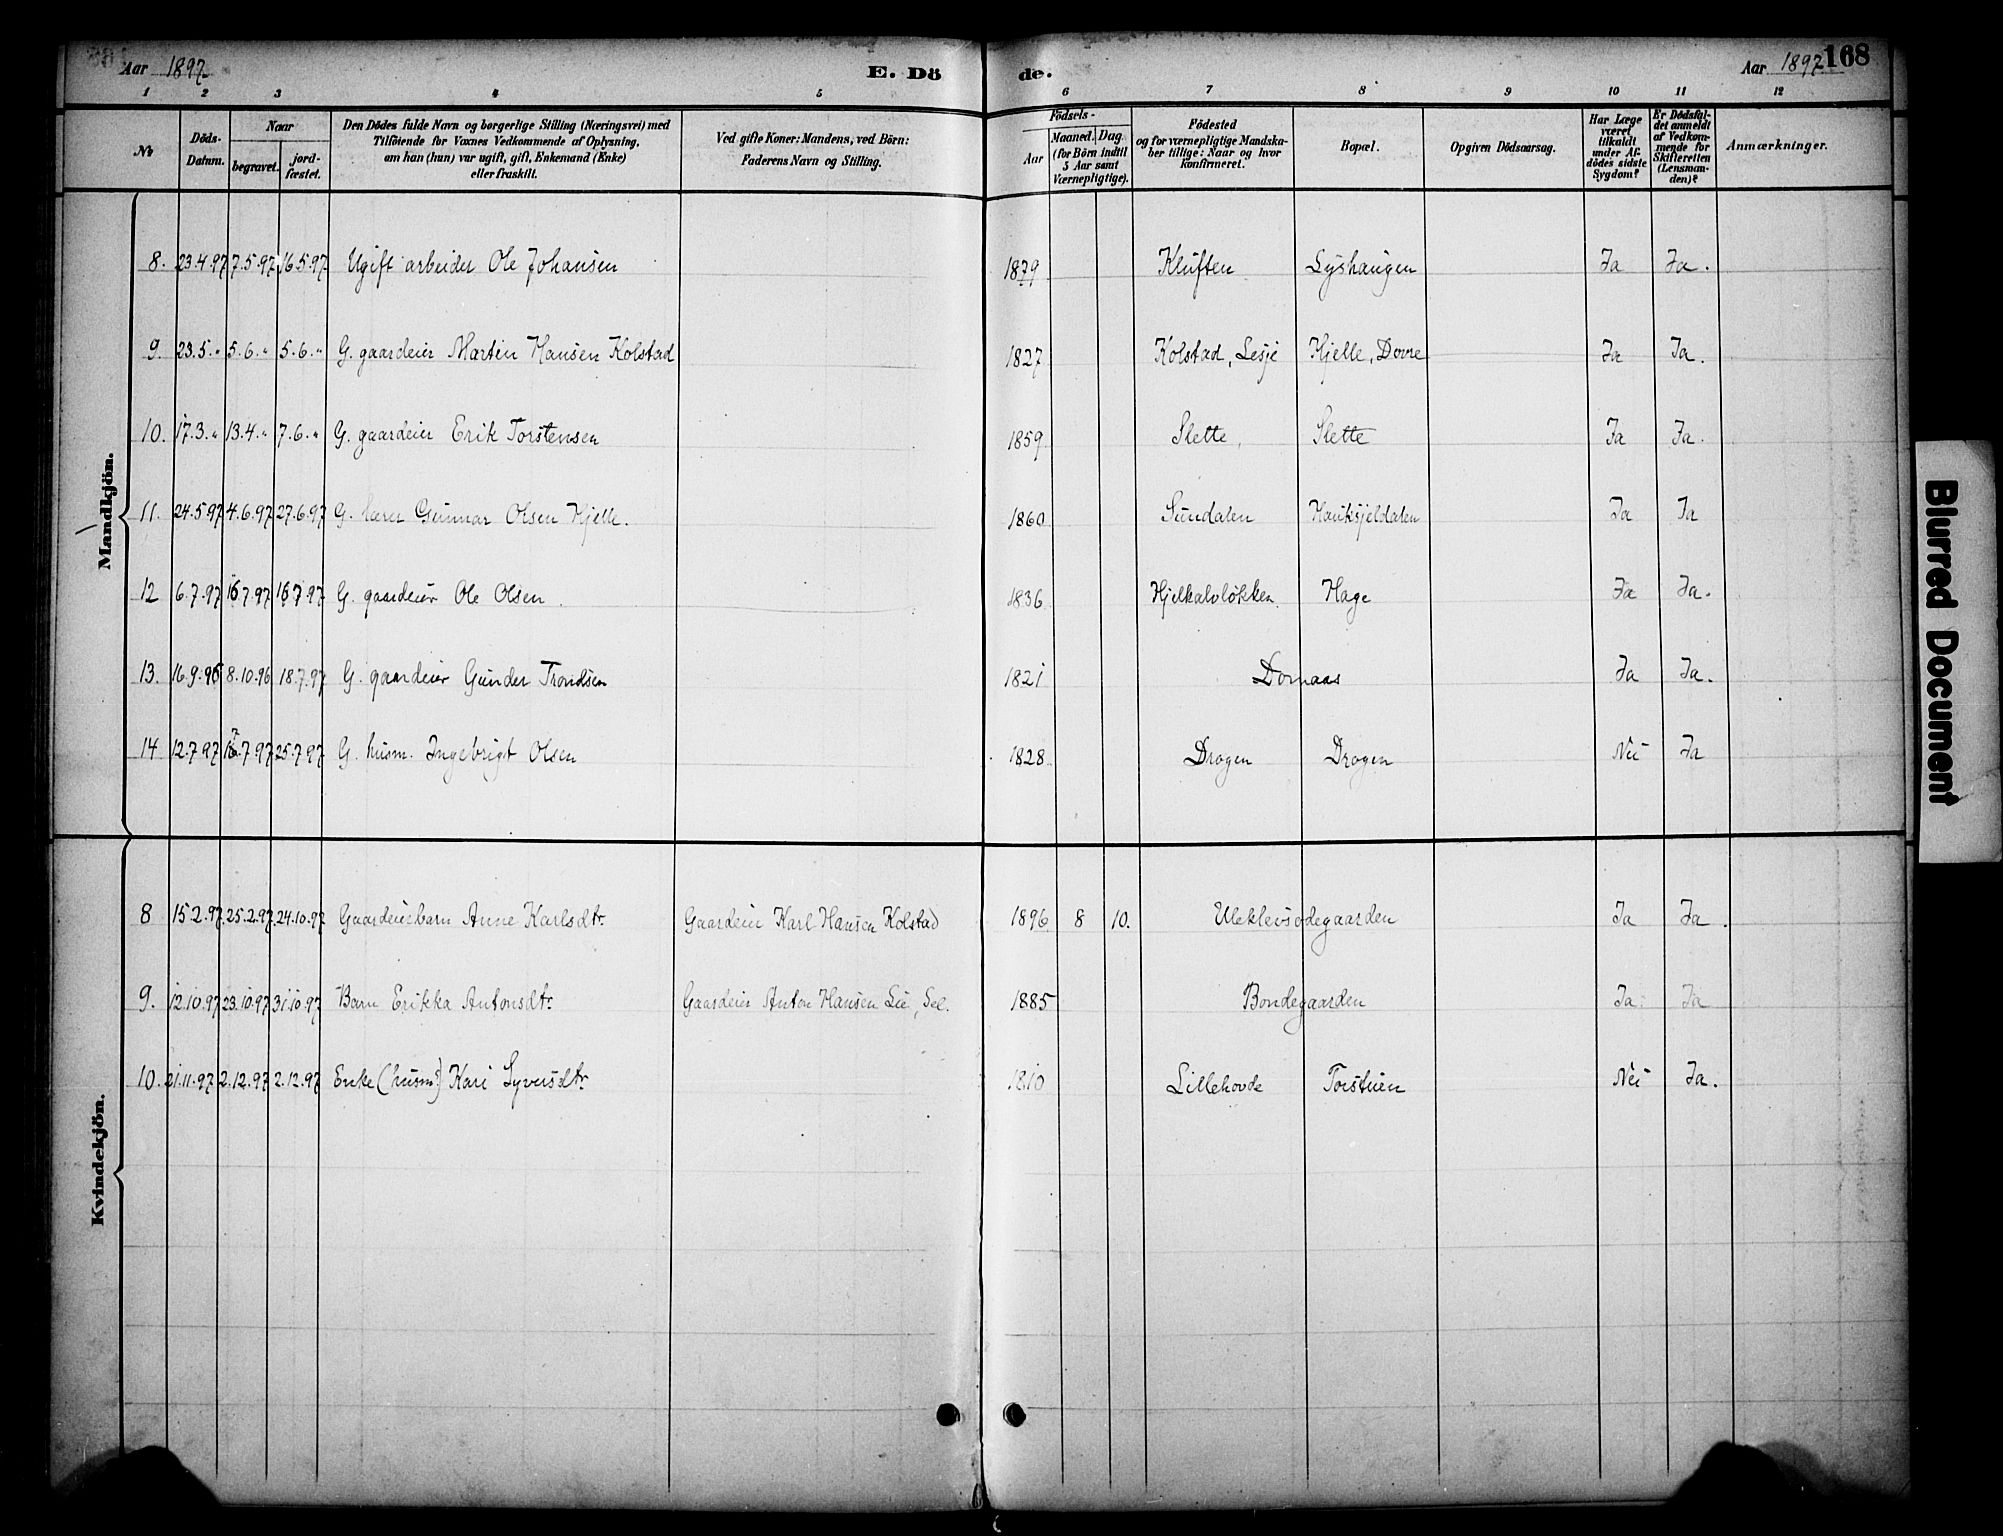 Aar 1897 E. Dö de. Aar 1897 168
1 2 3 4 5 6 7 8 9 10 11 12
No
Döds-
Datum.
Naar
begravet.
jord-
fæstet.
Den Dödes fulde Navn og borgerlige Stilling (Næringsvei) med
Tilföiende for Voxnes Vedkommende af Oplysning,
om han (hun) var ugift, gift, Enkemand (Enke)
eller fraskilt.
Ved gifte Koner: Mandens, ved Börn:
Faderens Navn og Stilling.
Födsels-
Aar
Maaned. Dag
(for Börn indtil
5 Aar samt
Værnepligtige).
Födested
og for værnepligtige Mandska-
ber tillige: Naar og hvor
konfirmeret.
Bopæl.
Opgiven Dödsaarsag.
Har Læge
været
tilkaldt
under Af-
dödes sidste
Sygdom?
Er Dödsfal-
det anmeldt
af Vedkom-
mende for
Skifteretten
(Lensman-
den)?
Anmærkninger.
Mandkjön.
8. 23.4.97 7.5.97 16.5.97 Ugift arbeider Ole Johansen 1879 Kluften Lyshaugen Ja Ja.
9. 23.5.„ 5.6.„ 5.6.„ G. gaardeier Martin Hansen Kolstad 1827 Kolstad, Lesje Hjelle, Dovre Ja Ja.
10. 17.3.„ 13.4.„ 7.6.„ G. gaardeier Erik Torstensen 1859 Slette, Slette Ja Ja.
11. 24.5.97 4.6.97 27.6.97 G. lærer Gunnar Olsen Hjelle. 1860 Sundalen Ja Ja
12 6.7.97 16.7.97 16.7.97 G. gaardeier Ole Olsen 1836 Hjelkalvløkken Hage Ja Ja.
13. 16.9.96 8.10.96 18.7.97 G. gaardeier Gunder Trondsen 1821 Domaas Ja Ja.
14 12.7.97 7.97 25.7.97 G. husm. Ingebrigt Olsen 1828 Drogen Drogen Nei Ja
Kvindekjön.
8 15.2.97. 25.2.97. 24.10.97 Gaardeierbarn Anne Karlsdtr. Gaardeier Karl Hansen Kolstad 1896 8 10. Uleklevsødegaarden Ja Ja.
9. 12.10.97 23.10.97 31.10.97 Barn Erikka Antonsdtr. Gaardeier Anton Hansen Lie, Sel. 1885 Bondegaarden Ja. Ja
10. 21.11.97 2.12.97 2.12.97 Enke (husm.) Kari Syversdtr. 1810 Lillehovde Torstuen Nei Ja.
Blurred Document